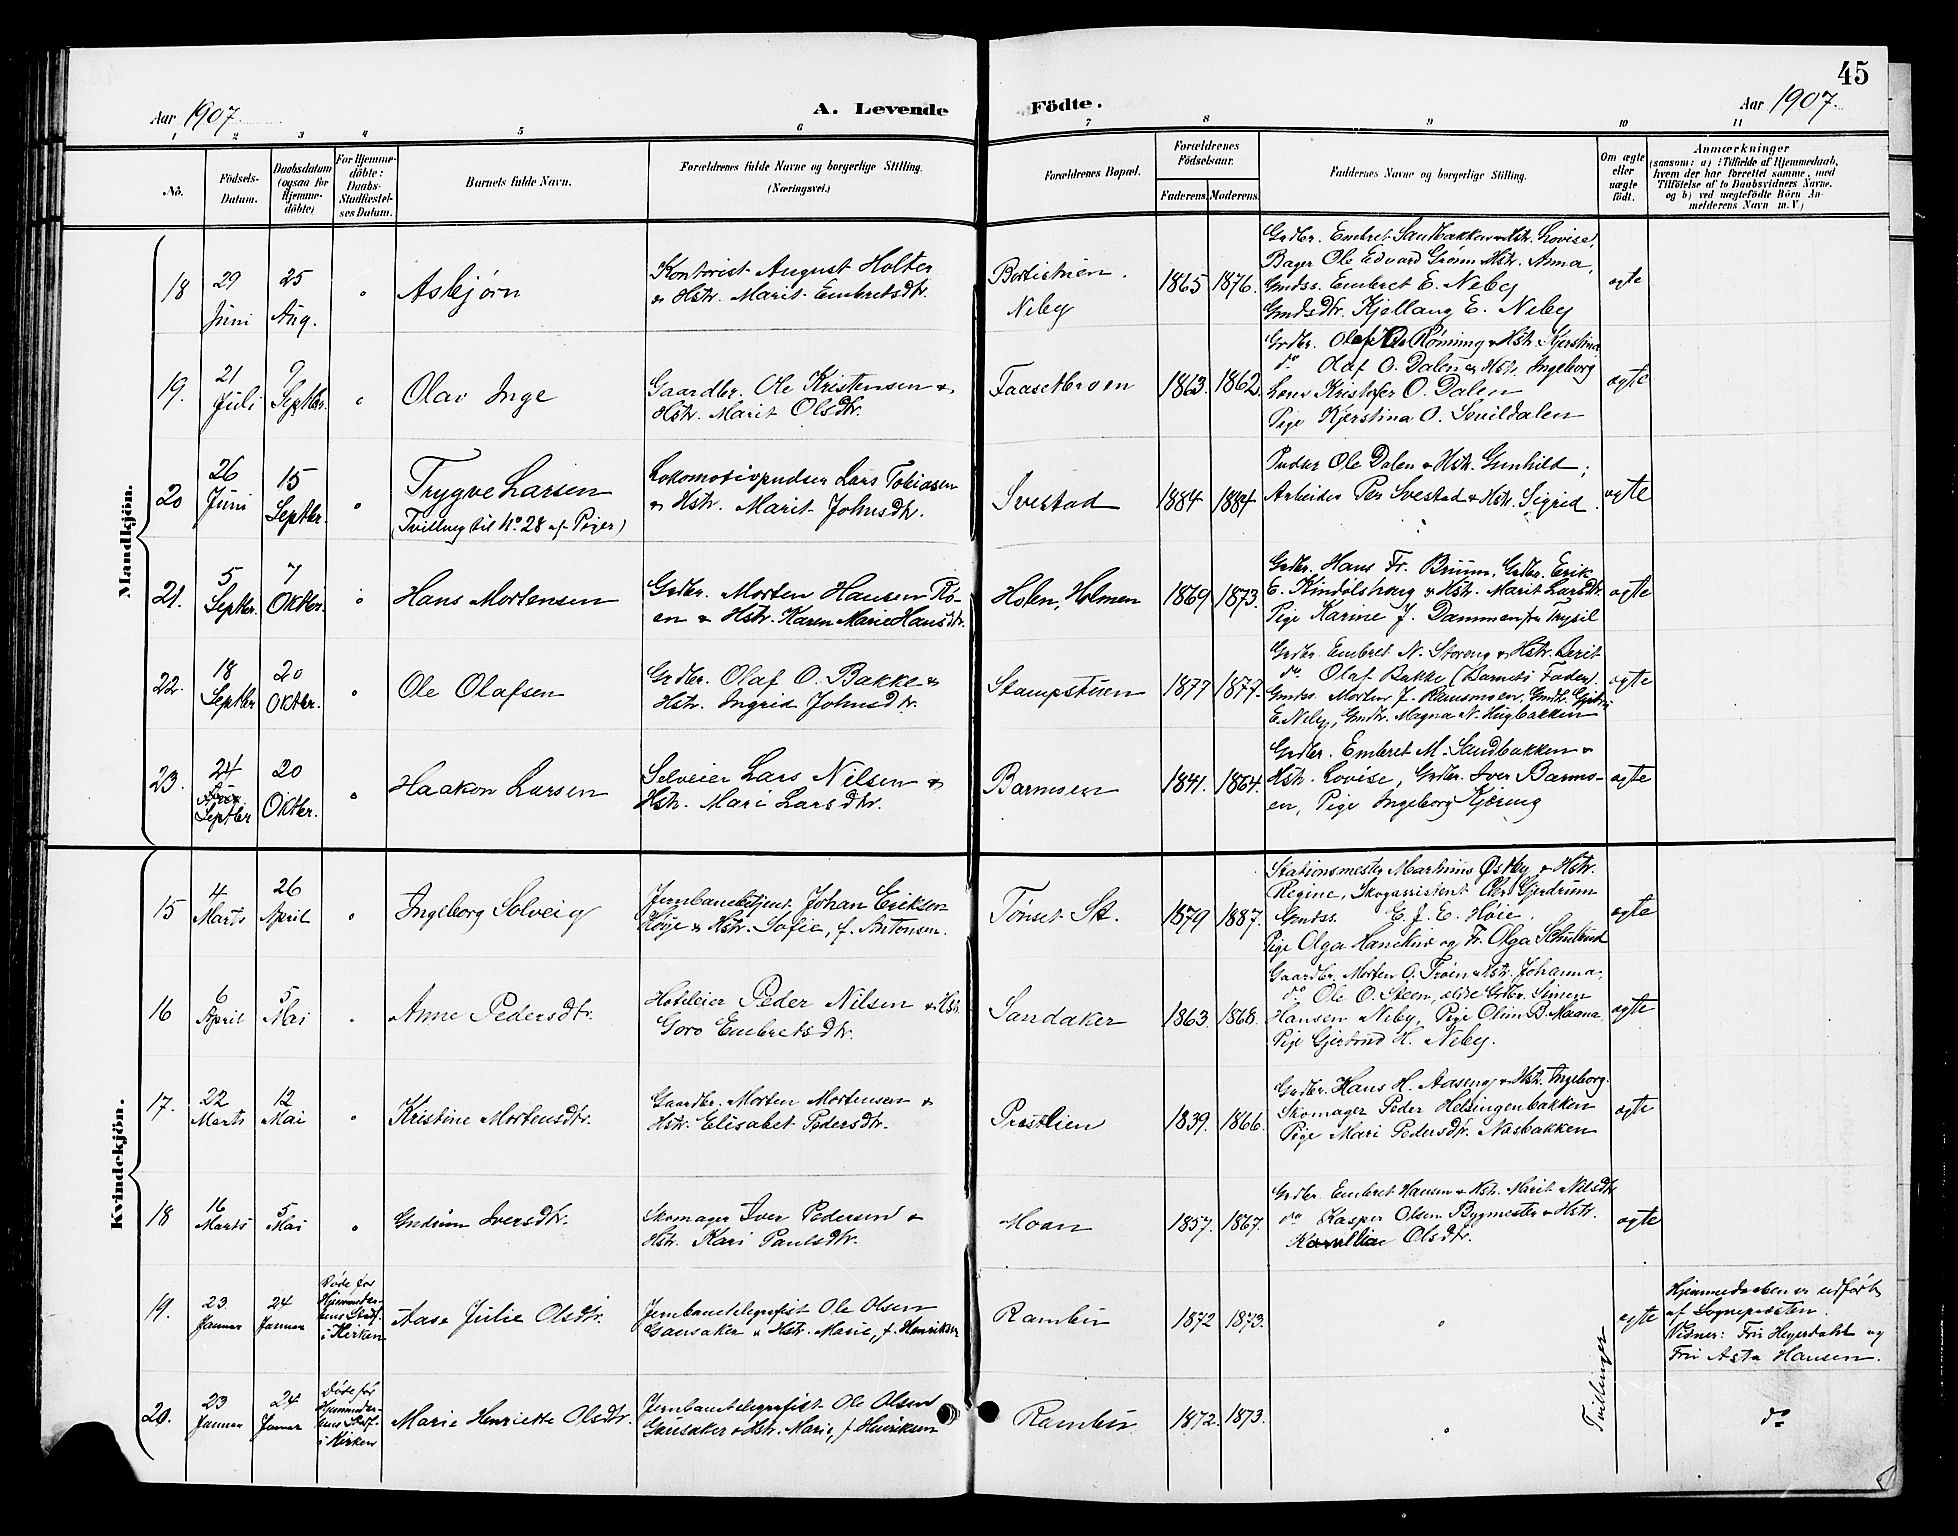 45
Aar 1907.
A. Levende Födte.
Aar 1907.
1 2 3 4 5 6 7 8 9 10 11
No.
Födsels-
Datum.
Daabsdatum
(ogsaa for
Hjemme-
döbte)
For Hjemme-
döbte:
Daabs-
Stadfæstel-
ses Datum.
Barnets fulde Navn.
Forældrenes fulde Navne og borgerlige Stilling.
(Næringsvei.)
Forældrenes Bopæl.
Forældrenes
Födselsaar.
Faderens. Moderens.
Faddernes Navne og borgerlige Stilling.
Om ægte
eller
uægte
født.
Anmærkninger
(saasom: a) i Tilfælde af Hjemmedaab,
hvem der har forrettet samme, med
Tilföielse af to Daabsvidners Navne,
og b) ved uægtefödte Börn An-
melderens Navn m. V.)
Mandkjön.
18
29
Juni
25
Aug.
Asbjørn
Kontorist August Holter
& Hstr. Marit Embretsdtr.
Neby
1865 1876.
Grdbr. Embret Sandbakken & Hstr. Lovise,
Bager Ole Edvard Grønn Hstr. Anna,
Gmdss. Embret E. Neby
Gmdsdtr. Kjellaug E. Neby
ægte
19.
21
Juli
9
Septbr.
Olav Inge
Gaardbr. Ole Kristensen &
Hstr. Marit Olsdtr.
Faasetbroen
1863. 1862.
Grdbr. Olaf Rønning & Hstr. Kjerstina
do Olaf O. Dalen & Hstr. Ingeborg
Kristofer O. Dalen
Pige Kjerstina O.
ægte
20
26
Juni
15
Septbr.
Trygve Larsen
(Tvilling til No. 28 af Piger)
Lokomotivpudser Lars Tobiasen
& Hstr. Marit Johnsdtr.
Svestad
1884 1884.
Pudser Ole Dalen & Hstr. Gunhild;
Arbeider Per Svestad & Hstr. Sigrid.
ægte
21.
5
Septbr.
7
Oktbr.
Hans Mortensen
Grdbr. Morten Hansen Rø-
en & Hstr. Karen Marie Hansdtr.
Holen, Holmen
1869 1873.
Grdbr. Hans Fr. Bruun. Grdbr. Erik
E. Kindølshaug & Hstr. Marit Larsdtr.
Pige Karine J. Dammen fra Trysil
ægte
22.
18
Septbr
20
Oktbr.
Ole Olafsen
Grdbr. Olaf O. Bakke &
Hstr. Ingrid Johnsdtr.
Stampstuen
1877 1877.
Grdbr. Embret N. Storeng & Hstr. Berit
do Olaf Bakke (Barnets Fader).
Gmdss. Morten J. Ramsmoen, Gmdtr.
E. Neby, Gmdtr. Magna N. Haugbakken
ægte
23.
24
Septbr
20
Oktbr.
Haakon Larsen
Selveier Lars Nilsen &
Hstr. Mari Larsdtr.
Barmoen
1841. 1864.
Grdbr. Embret M. Sandbakken &
Hstr. Lovise, Grdbr. Iver Barmo-
en, Pige Ingeborg Kjøreng
ægte
Kvindekjön.
15
4
Marts
26
April
Ingeborg Solveig
Jernbanebetjent Johan Eriksen
Høye & Hstr. Sofie, f. Antonsen.
Tønset St.
1879 1887.
Stationsmester Martinus Østby & Hstr.
Regine, Skogassistent Gjerdrum
Gmdss. E. J. E. Høie.
Pige Olga og Fr. Olga
ægte
16
6
April
5
Mai
Anne Pedersdtr.
Hoteleier Peder Nilsen & Hstr.
Goro Embretsdtr.
Sandaker
1863. 1868.
Gaardbr. Morten O. Troen & Hstr. Johanna,
do Ole O. Steen, ældre Grdbr. Simen
Hansen Neby, Pige Oline B. Maana
Pige Gjertrud H. Neby.
ægte
17.
22
Marts
12
Mai
Kristine Mortensdtr.
Gaardbr. Morten Mortensen &
Hstr. Elisabet Pedersdtr.
Præstlien
1839. 1866.
Grdbr. Hans H. Aaseng & Hstr. Ingeborg.
Skomager Peder Helsingenbakken
Pige Mari Pedersdtr. Næsbakken
ægte
18
16
Marts
5
Mai
Gudrun Iversdtr.
Skomager Iver Pedersen &
Hstr. Kari Paulsdtr.
Moan
1857. 1867.
Grdbr. Embret Hansen & Hstr. Marit Nilsdtr
do Kasper Olsen Bygmester & Hstr.
Olsdtr.
ægte
19.
23
Januar
24
Januar
Døde før
Hjemmedaa-
bens Stadf.
i Kirken
Aase Julie Olsdtr.
Jernbanetelegrafist Ole Olsen
Gausaker & Hstr. Marie, f. Henriksen
Rambu
1872 1873.
Tvillinger
ægte
Hjemmedaaben er udført
af Sognepræsten.
Vidner: Fru Heyerdahl og
Fru Asta Hansen.
20.
23
Januar
24
Januar
Døde før
Hjemmedaa-
bens Stadf.
i Kirken
Marie Henriette Olsdtr.
Jernbanetelegrafist Ole Olsen
Gausaker & Hstr. Marie, f Henriksen
Rambu
1872. 1873.
do